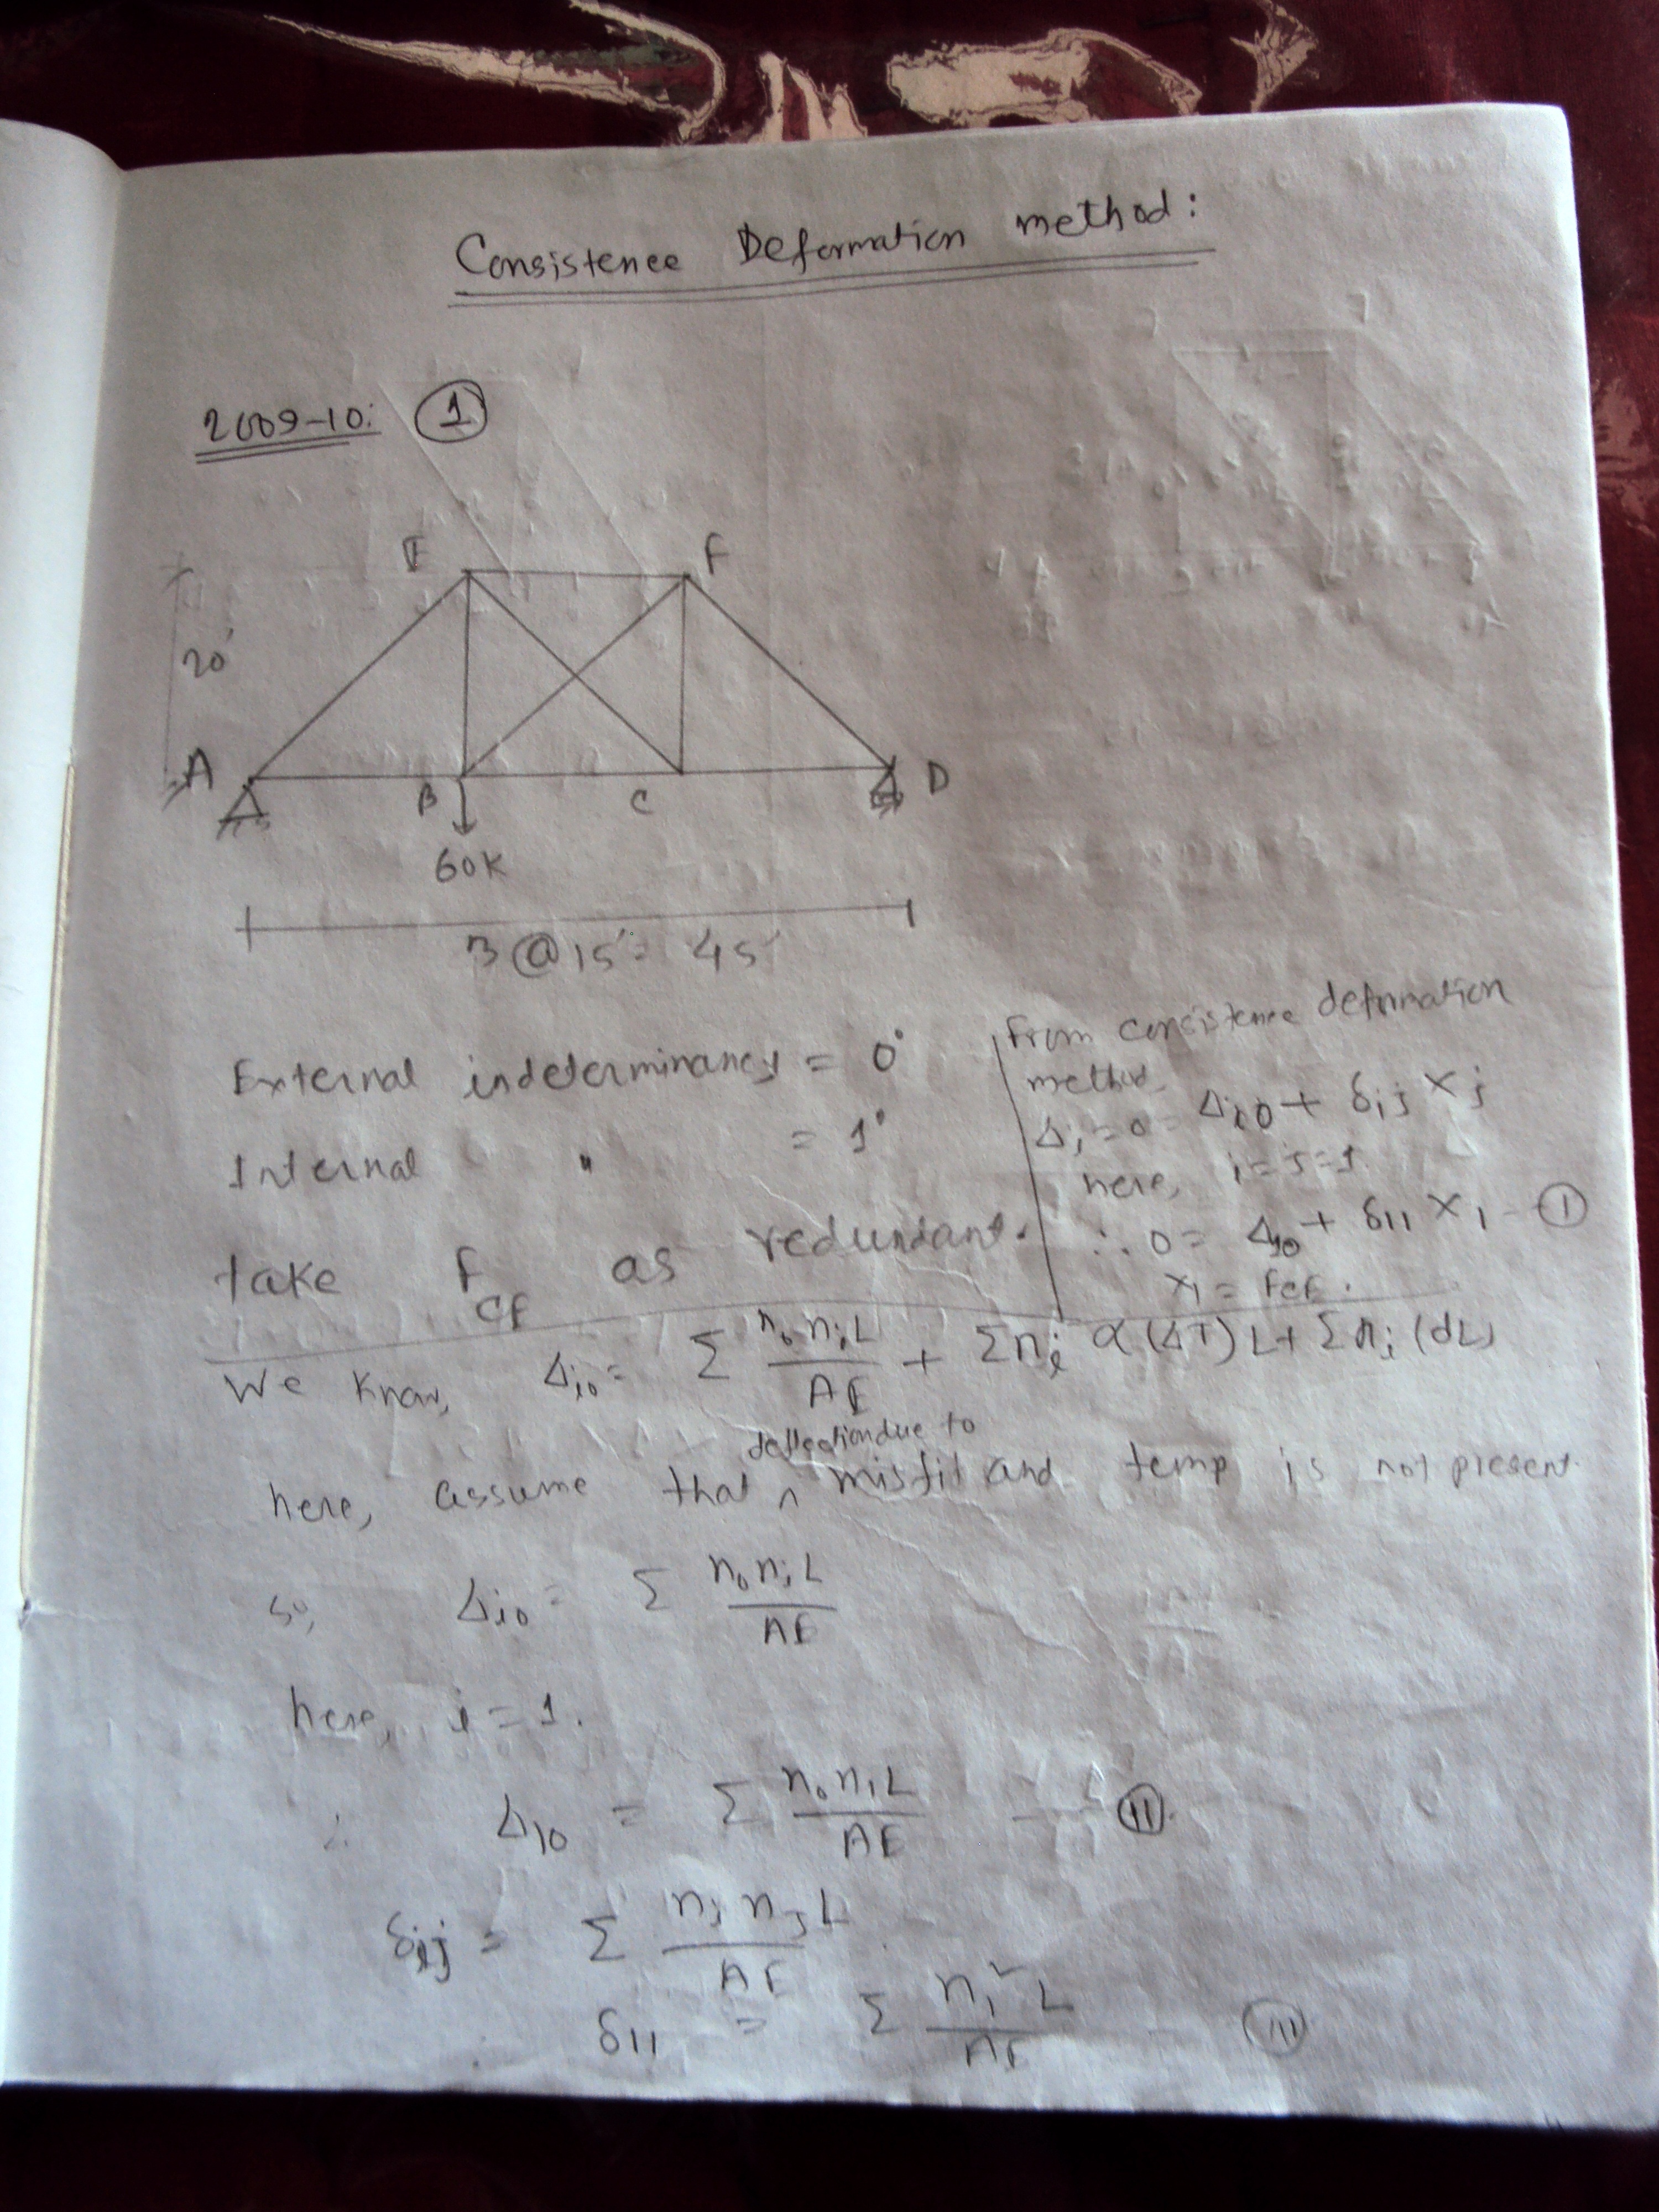 Consistence Deformation method:
2009-10: 1
E F
20'
A B C D
60K
3@15'= 45'
External indeterminancy = 0°
Internal " = 1°
take F_CF as redundant.
From consistence deformation
method
Δi=0= Δi0+ δij Xj
here, i=j=1.
∴ 0= Δ10+ δ11 X1 - I
X1 = FCF.
We know, Δi0= Σ n0 ni L / AE + Σni α(ΔT)L+ Σni (dL)
deflection due to
here, assume that ^ misfit and temp is not present.
so, Δi0 = Σ n0 ni L / AE
here, i=1.
∴ Δ10 = Σ n0 n1 L / AE — II.
δij = Σ ni nj L / AE
δ11 = Σ n1² L / AE - III